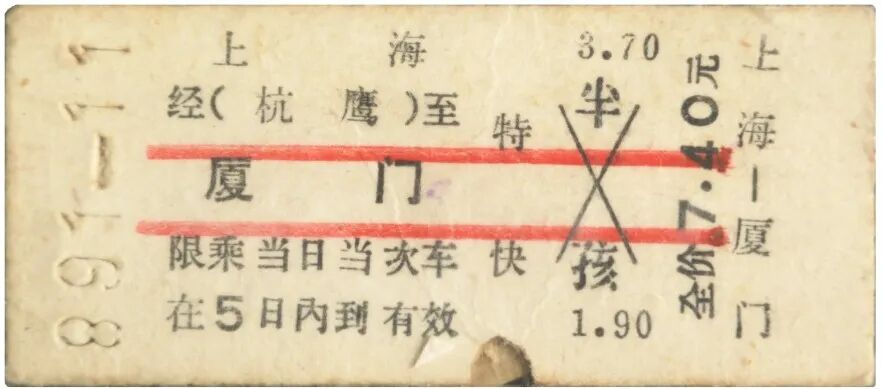 891-11
上海 3.70
经(杭 鹰)至 特 半
厦门
限乘当日当次车 快 孩
在5日内到有效 1.90
全价7.40元
上海—厦门